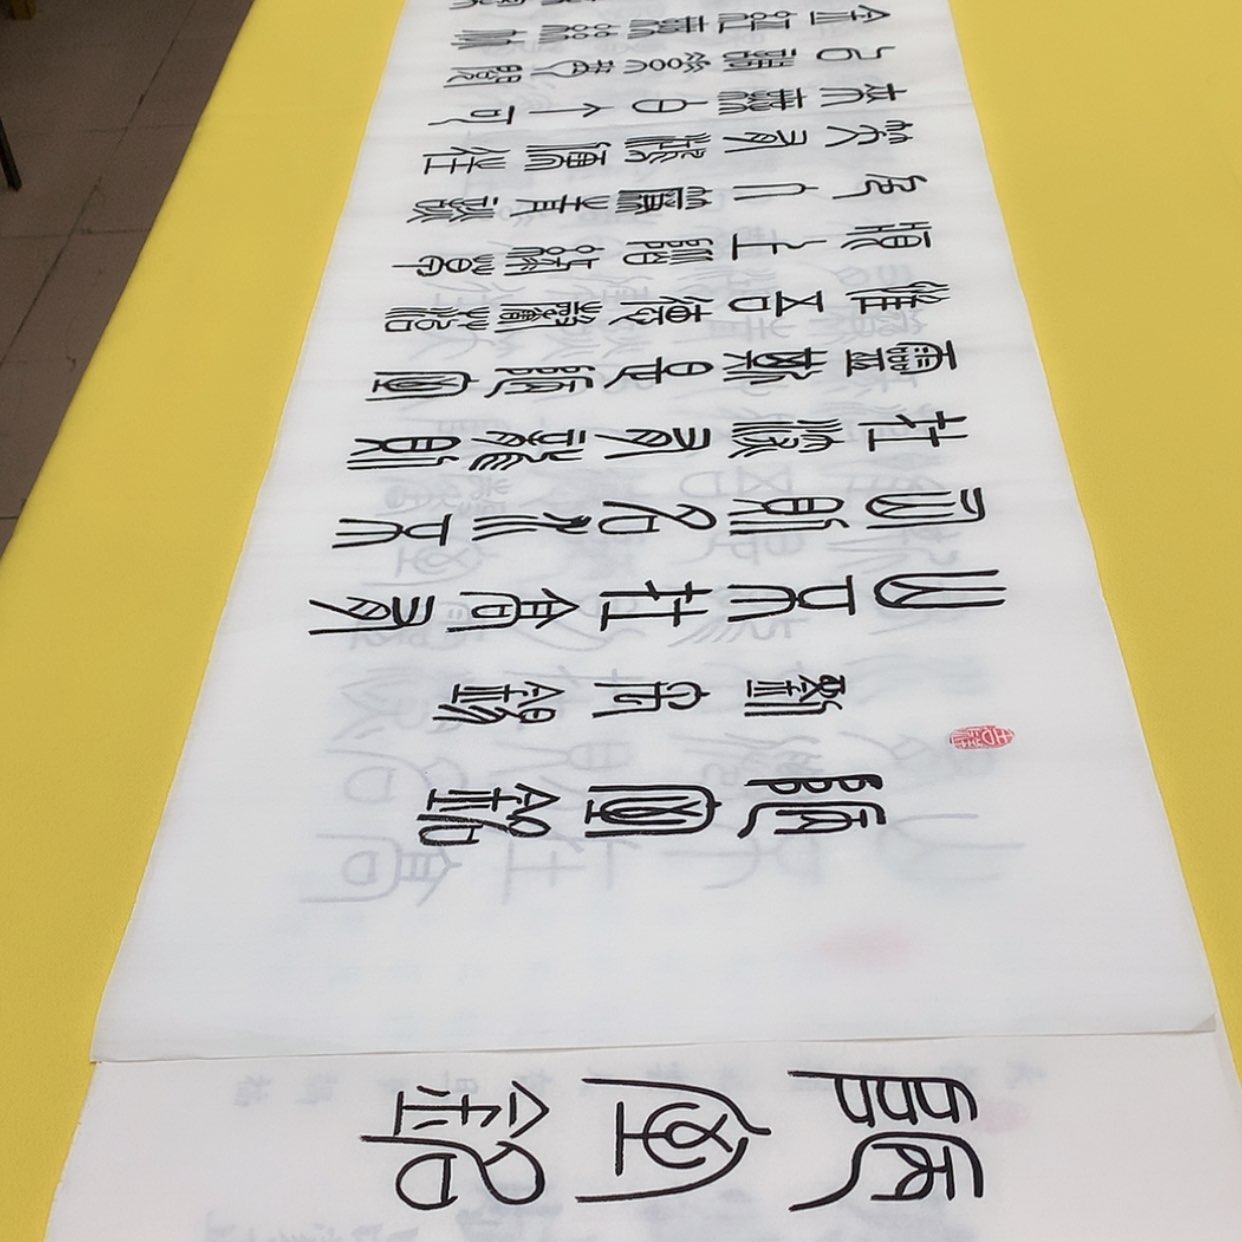 陋室銘
陋室銘
劉禹錫
山不在高有
仙則名水不
在深有龍則
靈斯是陋室
惟吾德馨苔
痕上階綠草
色入簾青談
笑有鴻儒往
來無白丁可
以調素琴閱
金經無絲竹